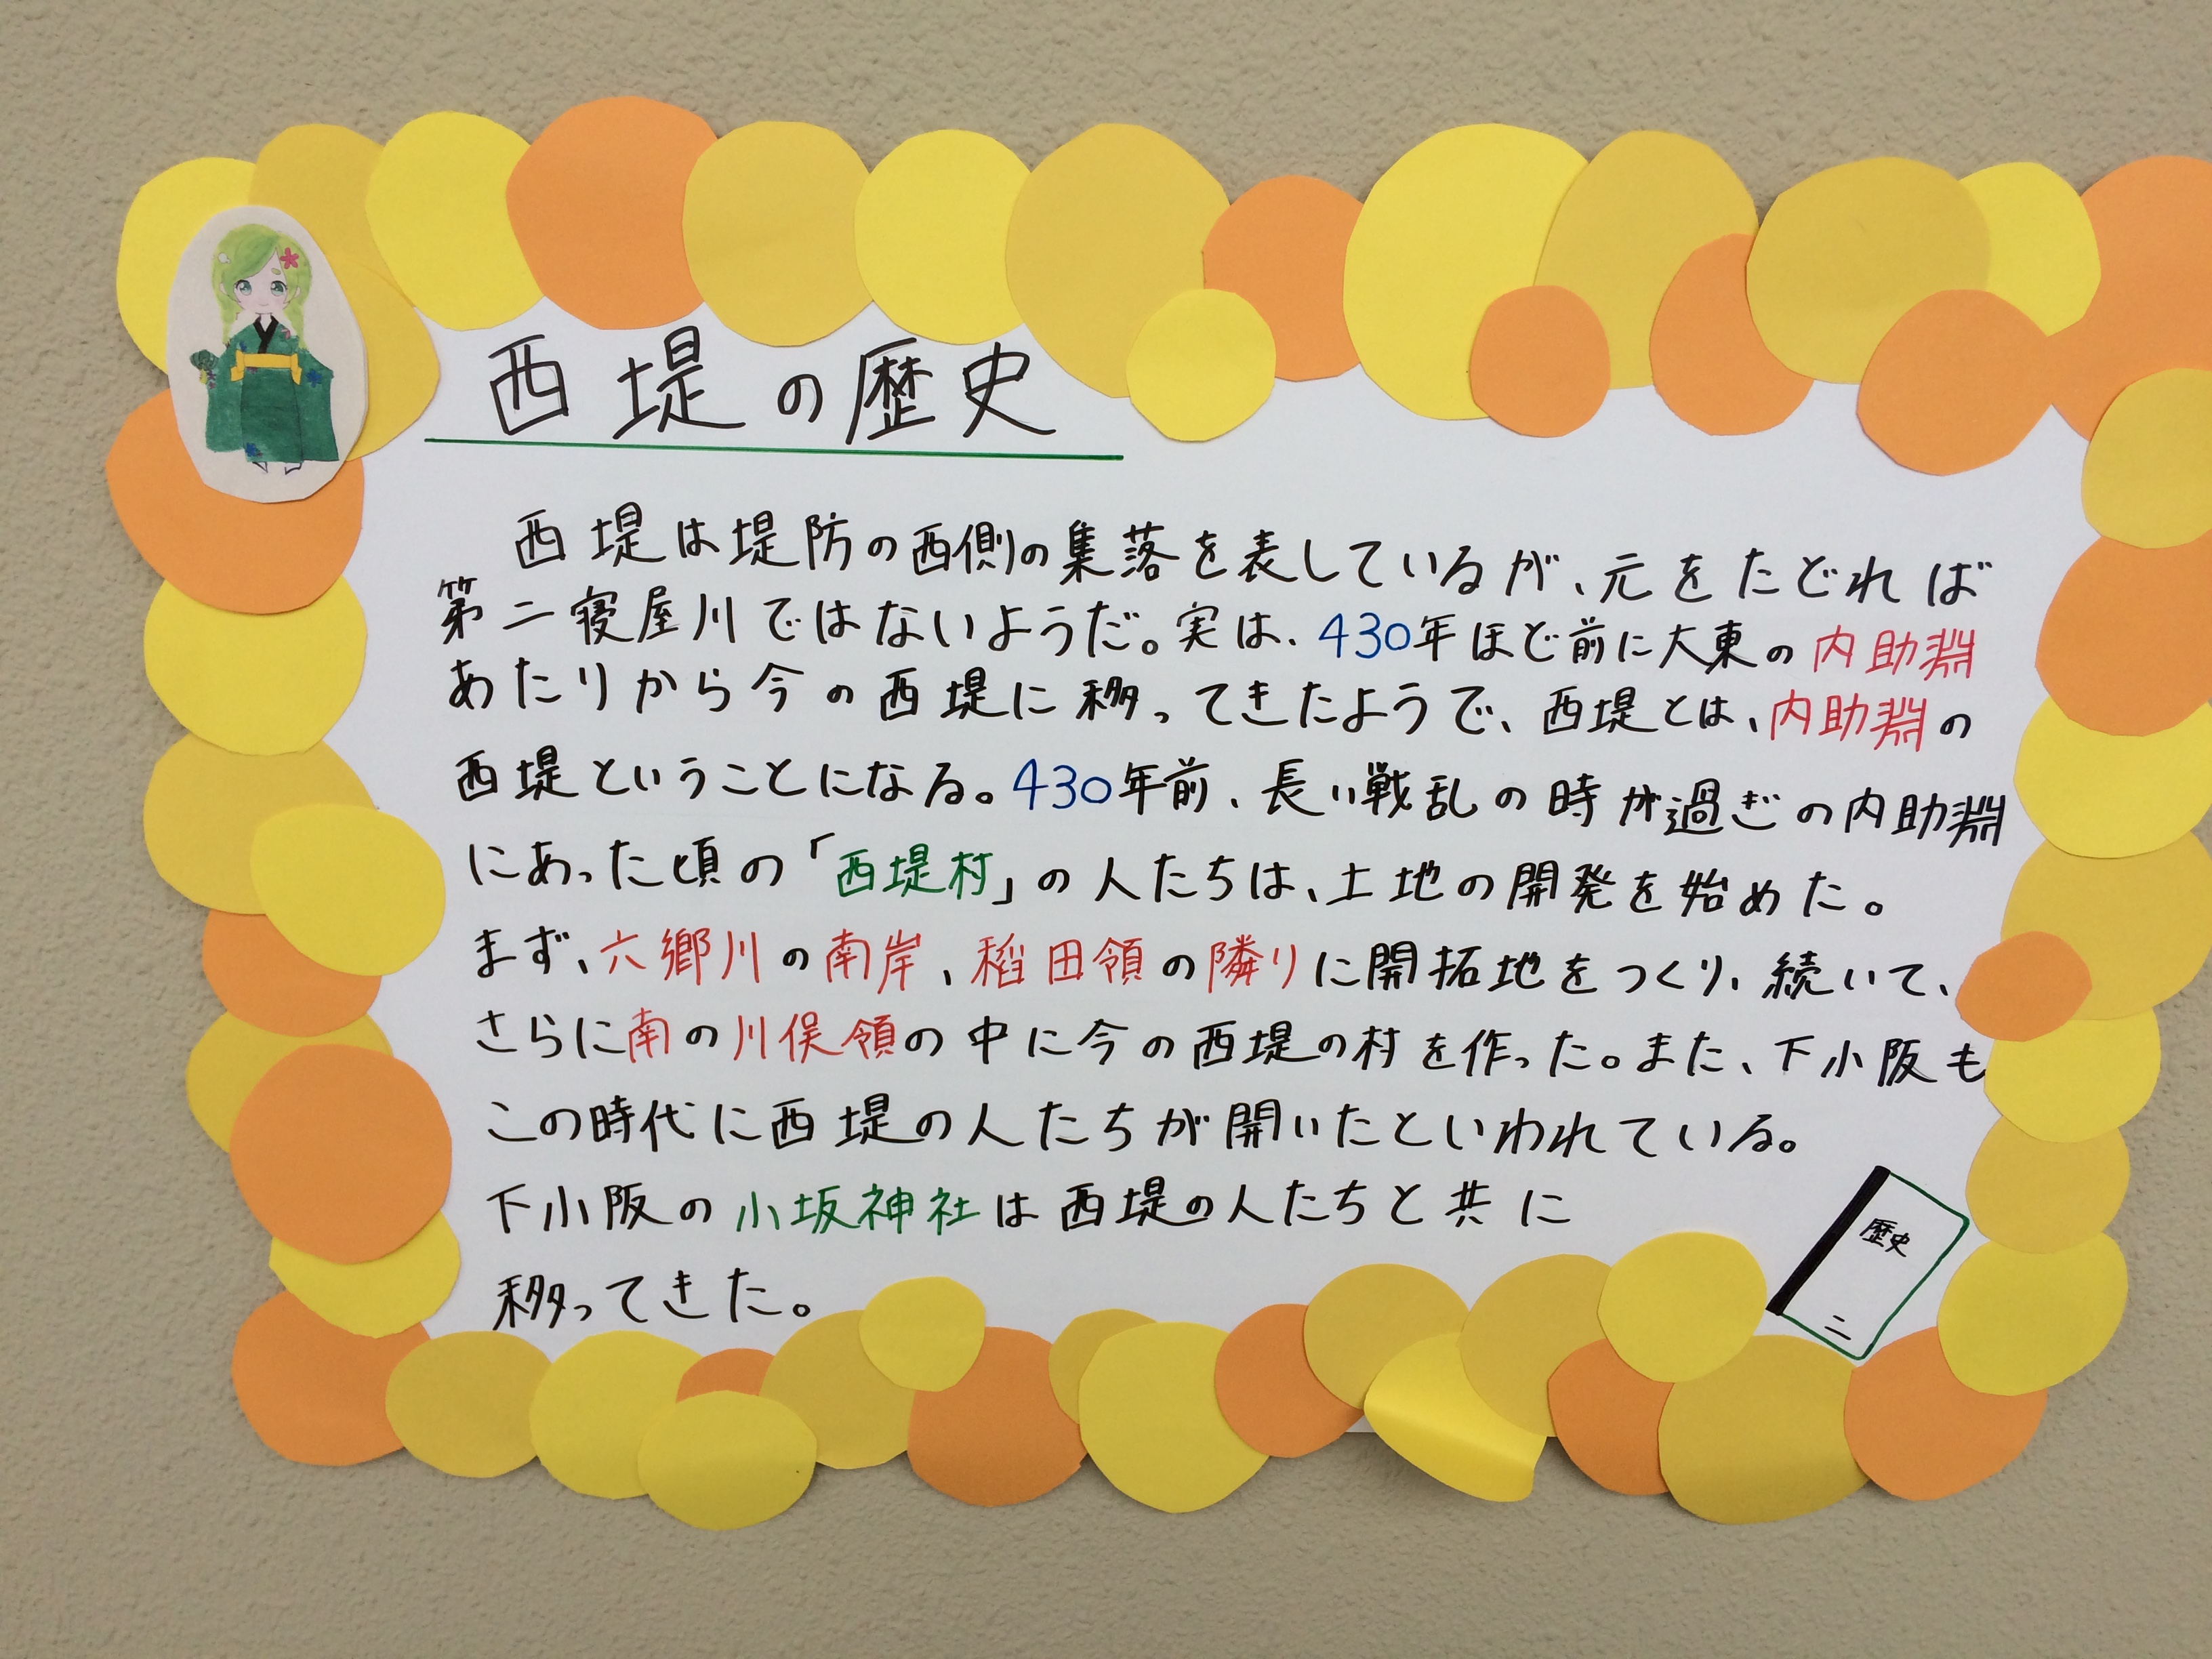 西堤の歴史
西堤は堤防の西側の集落を表しているが、元をたどれば
第二寝屋川ではないようだ。実は、430年ほど前に大東の内助淵
あたりから今の西堤に移ってきたようで、西堤とは、内助淵の
西堤ということになる。430年前、長い戦乱の時が過ぎの内助淵
にあった頃の「西堤村」の人たちは、土地の開発を始めた。
まず、六郷川の南岸、稻田領の隣りに開拓地をつくり、続いて、
さらに南の川俣領の中に今の西堤の村を作った。また、下小阪も
この時代に西堤の人たちが開いたといわれている。
下小阪の小坂神社は西堤の人たちと共に
移ってきた。
歴史
二